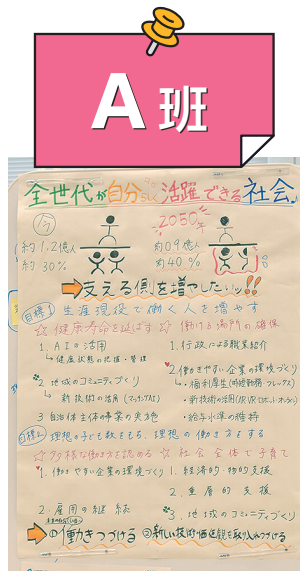 A班
全世代が自分らしく活躍できる社会
今
2050年
約1.2億人
約30%
約0.9億人
約40%
支える側を増やしたいッ!!
目標1 生涯現役で働く人を増やす
☆健康寿命を延ばす ☆働ける場所の確保
1. AIの活用
↳健康状態の把握・管理
2. 地域のコミュニティづくり
↳新技術の活用(マッチングAI)
3. 自治体主体の事業の実施
1. 行政による職業紹介
2. 働きやすい企業の環境づくり
↳・福利厚生(時短勤務・フレックス)
・新技術の活用(AR,VR,ロボット)
・給与水準の維持
目標2 理想の子ども数をもち、理想の働き方をする
☆多様な働き方を認める ☆社会全体で子育て
1. 働きやすい企業の環境づくり
2. 雇用の継続
1. 経済的・物的支援
2. 重層的支援
3. 地域のコミュニティづくり
①働きつづける ②新しい技術や価値観を取り入れつづける